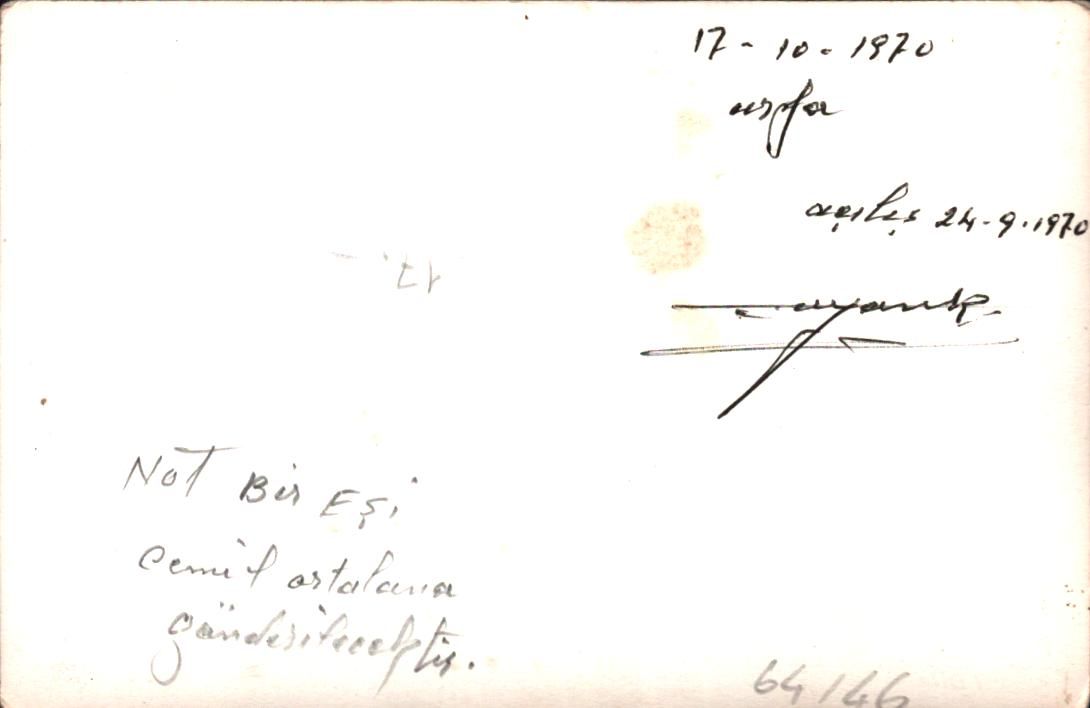 17 - 10 - 1970
urfa
açılış 24-9-1970
Not Bir Eşi
Cemil ortalana
gönderilecektir.
64/46